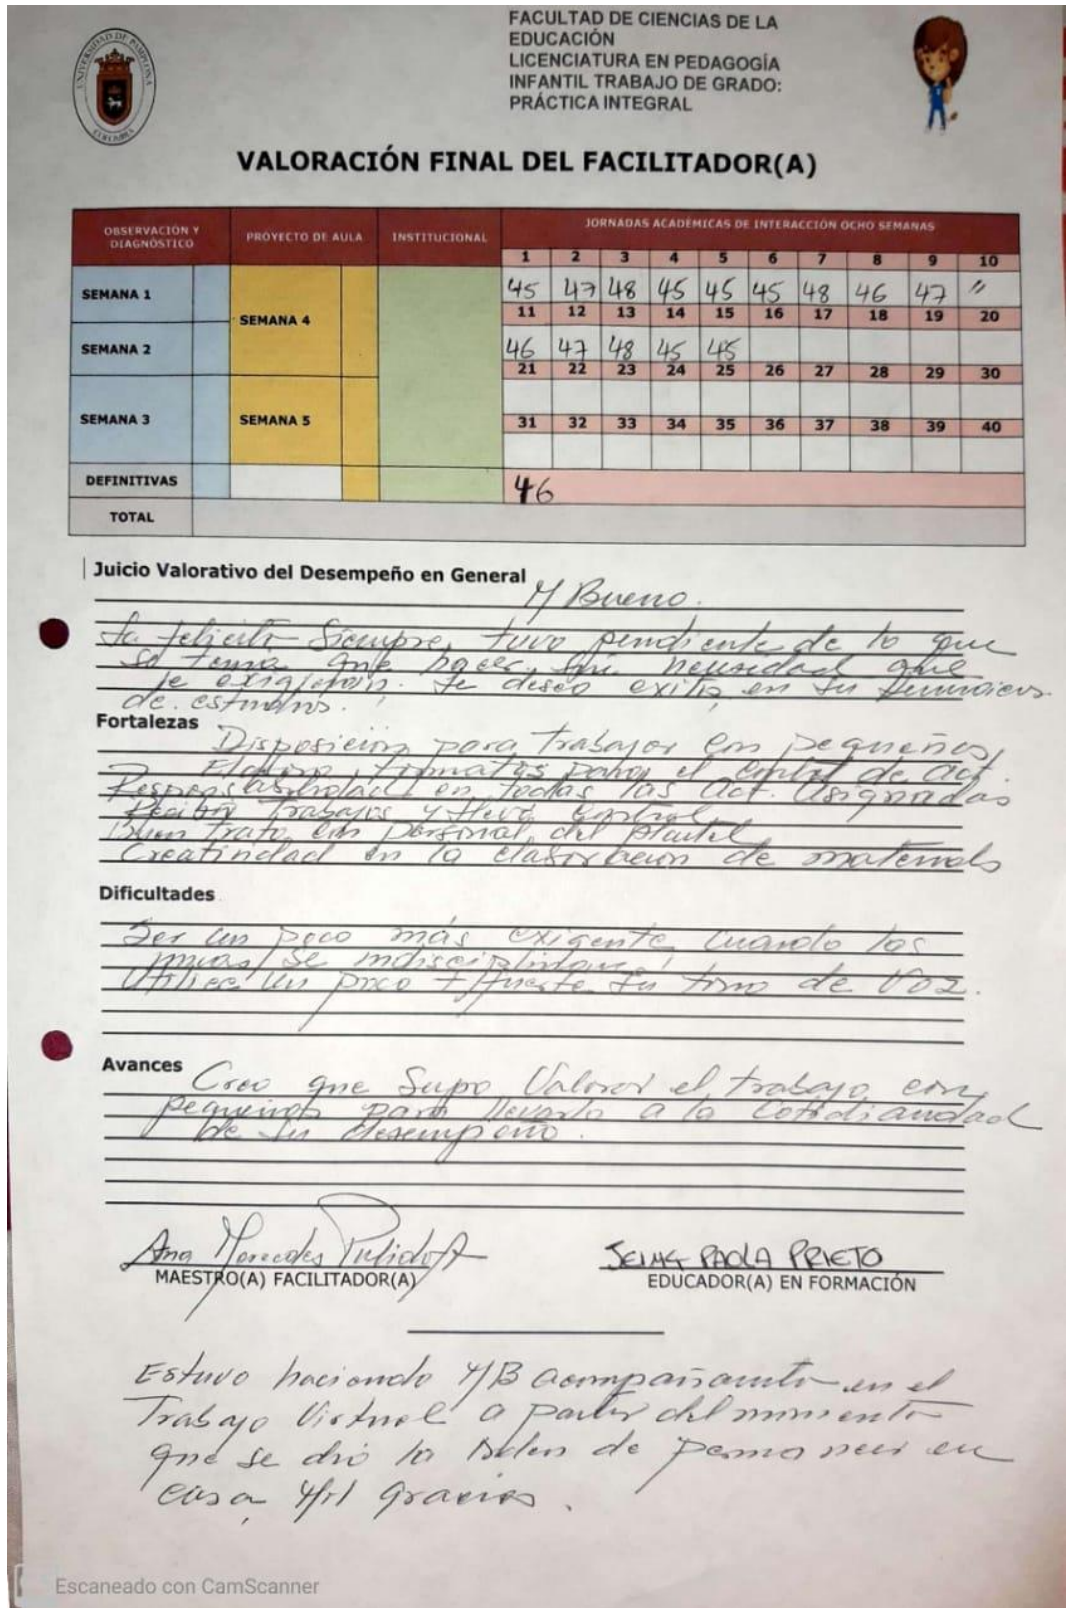 UNIVERSIDAD DE PAMPLONA
COLOMBIA
FACULTAD DE CIENCIAS DE LA
EDUCACIÓN
LICENCIATURA EN PEDAGOGÍA
INFANTIL TRABAJO DE GRADO:
PRÁCTICA INTEGRAL
VALORACIÓN FINAL DEL FACILITADOR(A)
OBSERVACIÓN Y DIAGNÓSTICO PROYECTO DE AULA INSTITUCIONAL JORNADAS ACADÉMICAS DE INTERACCIÓN OCHO SEMANAS
1 2 3 4 5 6 7 8 9 10
SEMANA 1 45 47 48 45 45 45 48 46 47 "
SEMANA 4 11 12 13 14 15 16 17 18 19 20
SEMANA 2 46 47 48 45 45
21 22 23 24 25 26 27 28 29 30
SEMANA 3 SEMANA 5
31 32 33 34 35 36 37 38 39 40
DEFINITIVAS 46
TOTAL
Juicio Valorativo del Desempeño en General
M Bueno.
La felicito Siempre, tuvo pendiente de lo que
se tenía que hacer, sin necesidad que
le exigieran. Le deseo exitos en su
de estudios.
Fortalezas
Disposición para trabajar con pequeños,
Elaboro formatos para el control de act.
Responsabilidad en todas las act. asignadas
Recibir Trabajos y llevar control
Buen trato con personal del plantel
Creatividad en la elaboracion de materials
Dificultades
Ser un poco más exigente, cuando los
se indisciplinan,
Utilice un poco + fuerte su tono de voz.
Avances
Creo que Supo Valorar el trabajo con
pequeños para llevarlo a la cotidianidad
de su desempeño.
Ana Mercedes Pulido A
MAESTRO(A) FACILITADOR(A)
JEIMY PAOLA PRIETO
EDUCADOR(A) EN FORMACIÓN
Estuvo haciendo M/B acompañamto en el
Trabajo Virtual a partir del momento
que se dió la orden de permanecer en
casa, gracias.
Escaneado con CamScanner